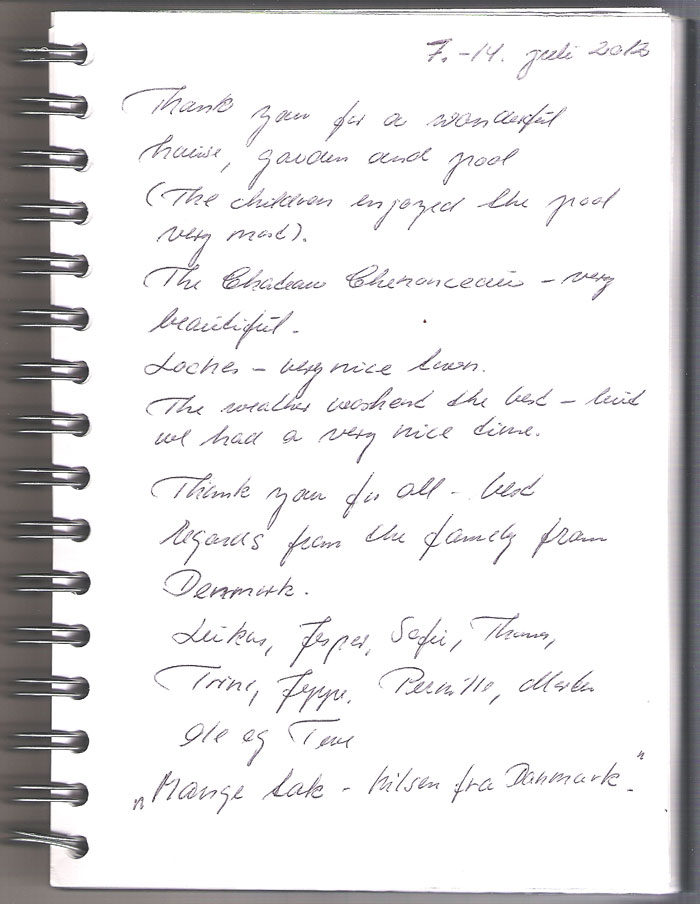 7.-14. juli 2012
Thank you for a wonderful
house, garden and pool
(The children enjoyed the pool
very most).
The Chateau Chenonceau - very
beautiful.
Loches - very nice town.
The weather washent the best - but
we had a very nice time.
Thank you for all - best
regards from the family from
Denmark.
Lukas, Jesper, Sofie, Thomas,
Trine, Jeppe, Pernille,
Ole og Tove
"Mange tak - hilsen fra Danmark."